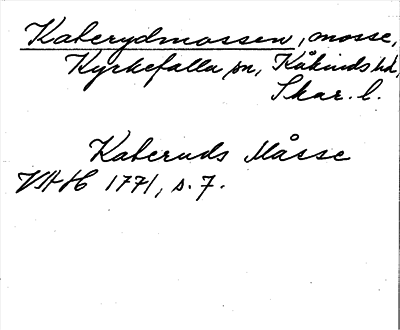 Kaberydmossen, mosse,
Kyrkefalla sn, Kåkinds hd,
Skar. l.
Kaberuds Måsse
VAH 1771, s. 7.